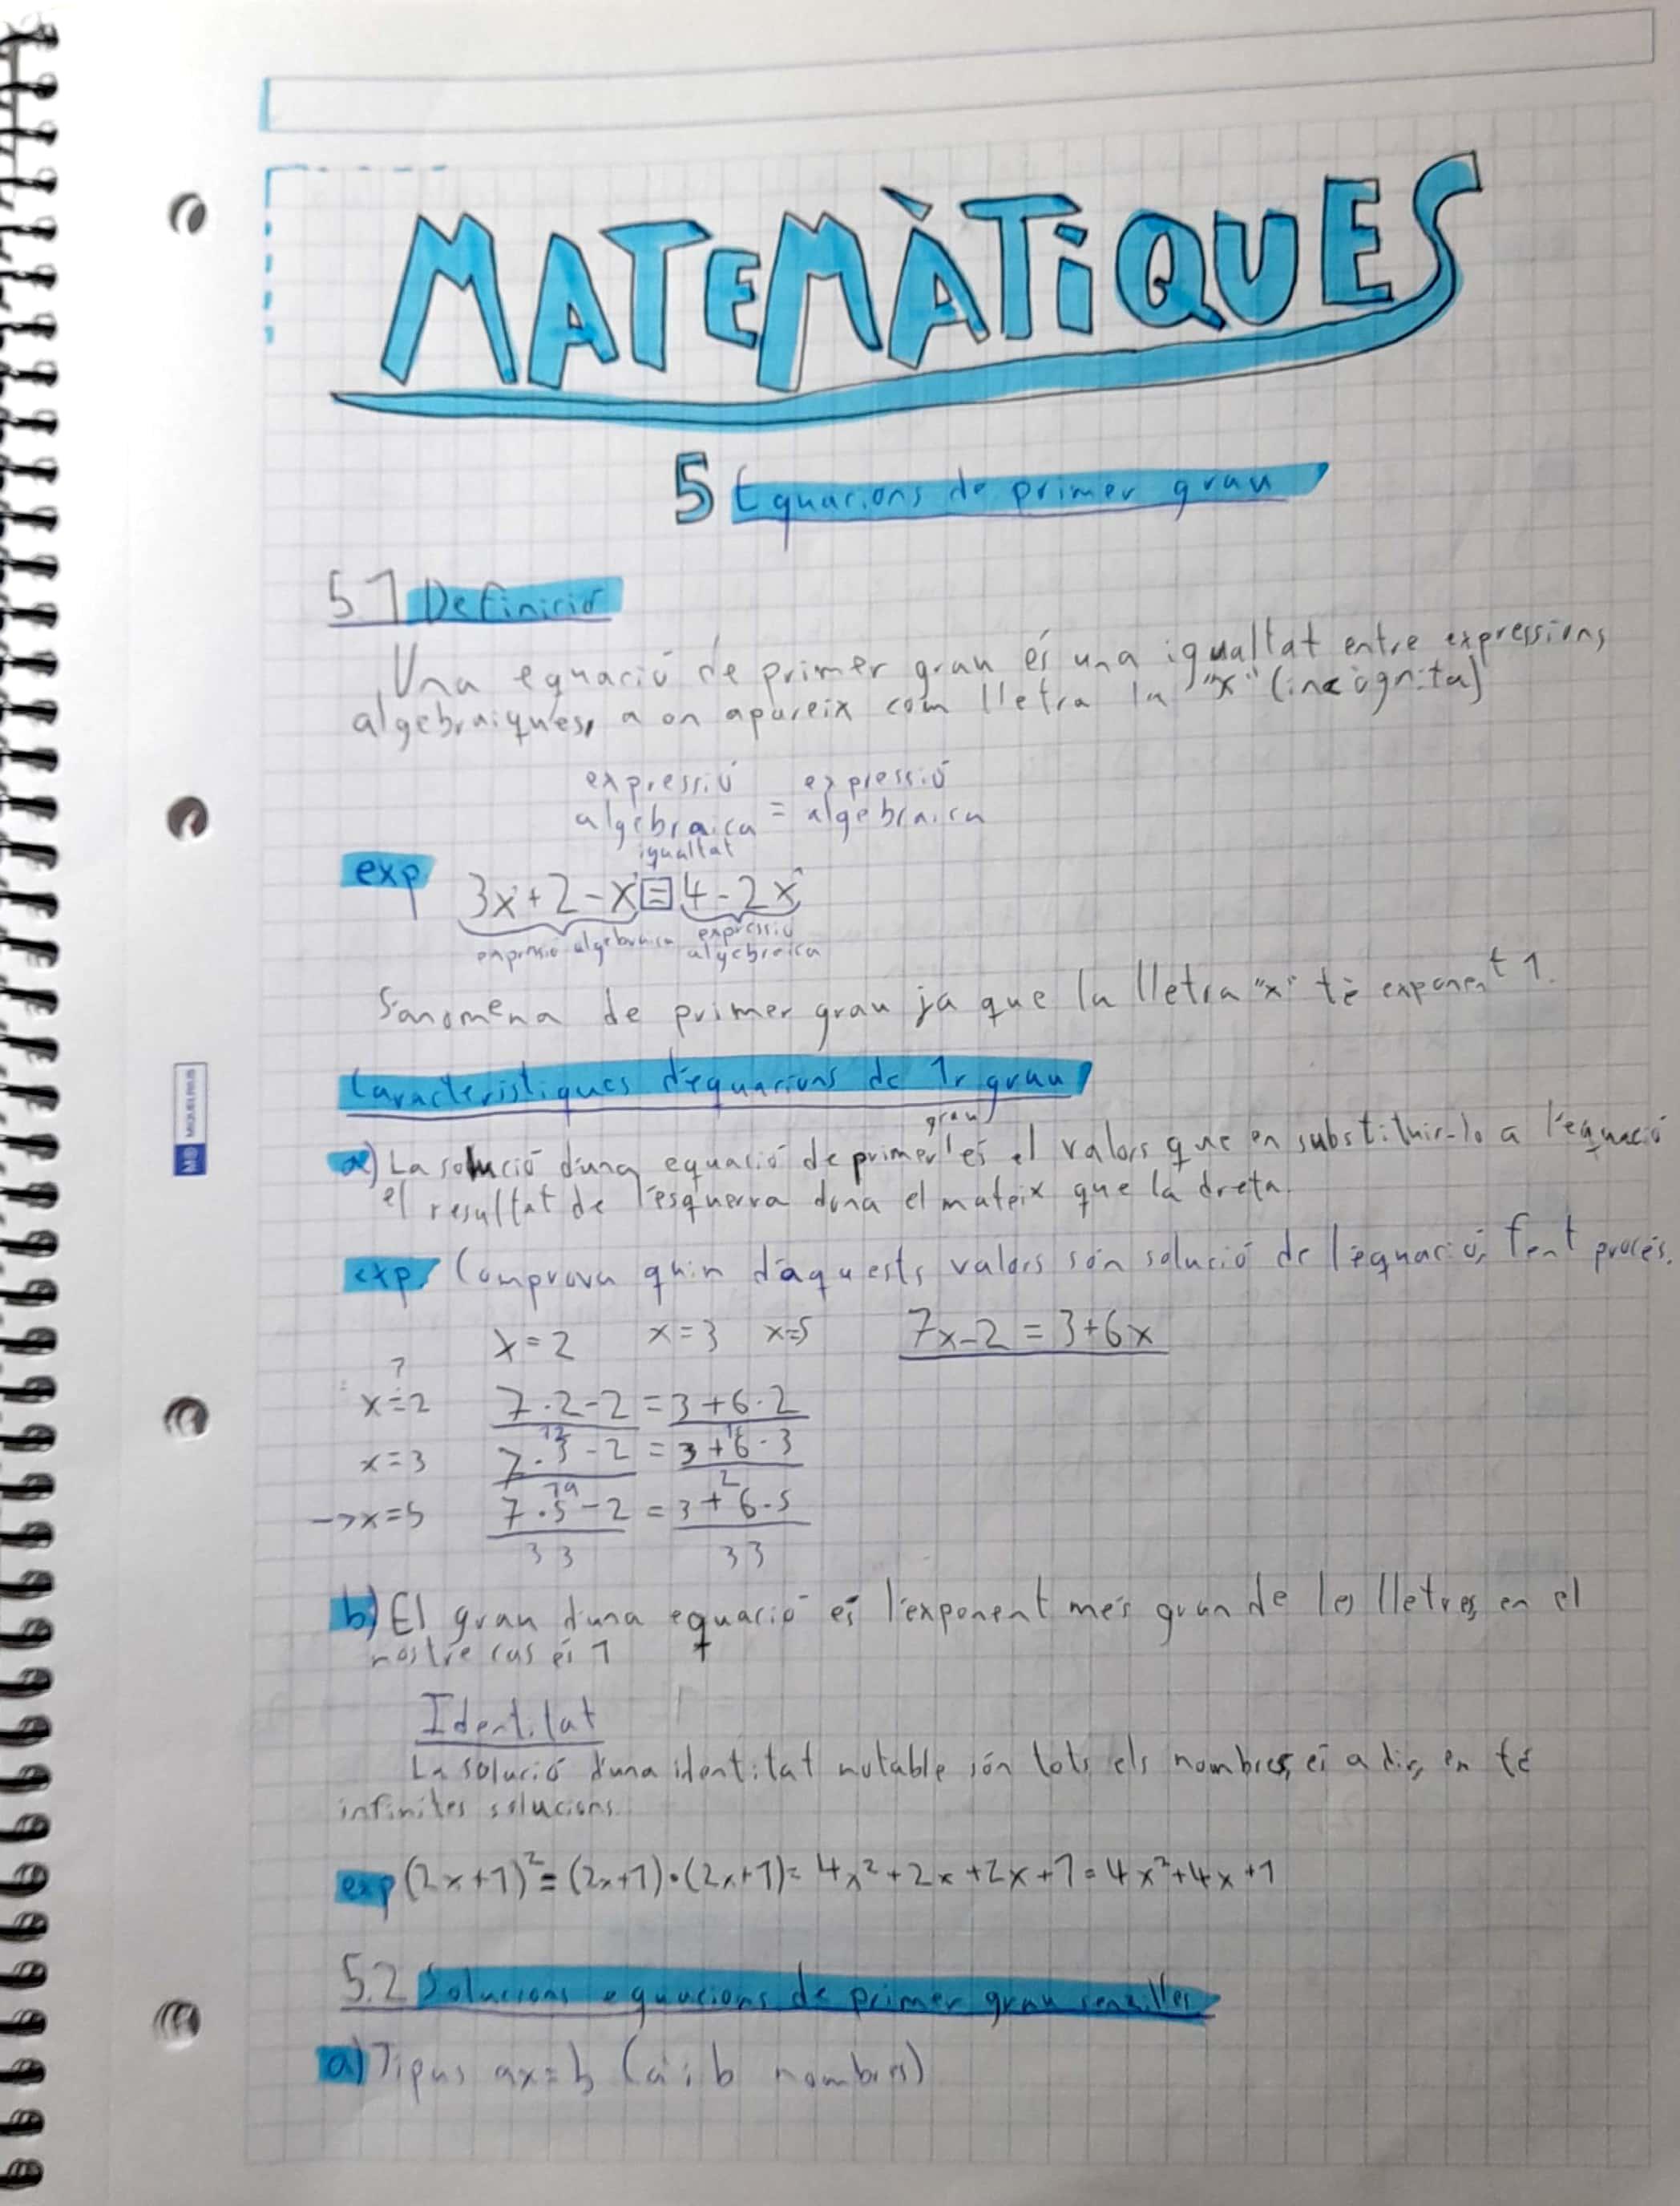 MATEMÀTIQUES
5 Equacions de primer grau
5.1 Definició
Una equació de primer grau és una igualtat entre expressions
algebraiques, a on apareix com lletra la "x" (incògnita)
expressió expressió
algebraica = algebraica
igualtat
exp 3x+2-x=4-2x
expresió algebraica expressió
algebraica
S'anomena de primer grau ja que la lletra "x" té exponent 1.
Característiques d'equacions de 1r grau
grau
a) La solució d'una equació de primer és el valors que en substituir-lo a l'equació
el resultat de l'esquerra dona el mateix que la dreta.
exp. Comprova quin d'aquests valors són solució de l'equació, fent procés.
x=2 x=3 x=5 7x-2=3+6x
?
x=2 7·2-2=3+6·2
12 15
x=3 7·3-2=3+6·3
19 2
→x=5 7·5-2=3+6·5
33 33
b) El grau d'una equació és l'exponent més gran de les lletres, en el
nostre cas és 1
Identitat
La solució d'una identitat notable són tots els nombres, és a dir, en té
infinites solucions.
exp (2x+1)²=(2x+1)·(2x+1)=4x²+2x+2x+1=4x²+4x+1
5.2 Solucions equacions de primer grau senzilles
a) Tipus ax=b (a i b nombres)
MIQUELRIUS